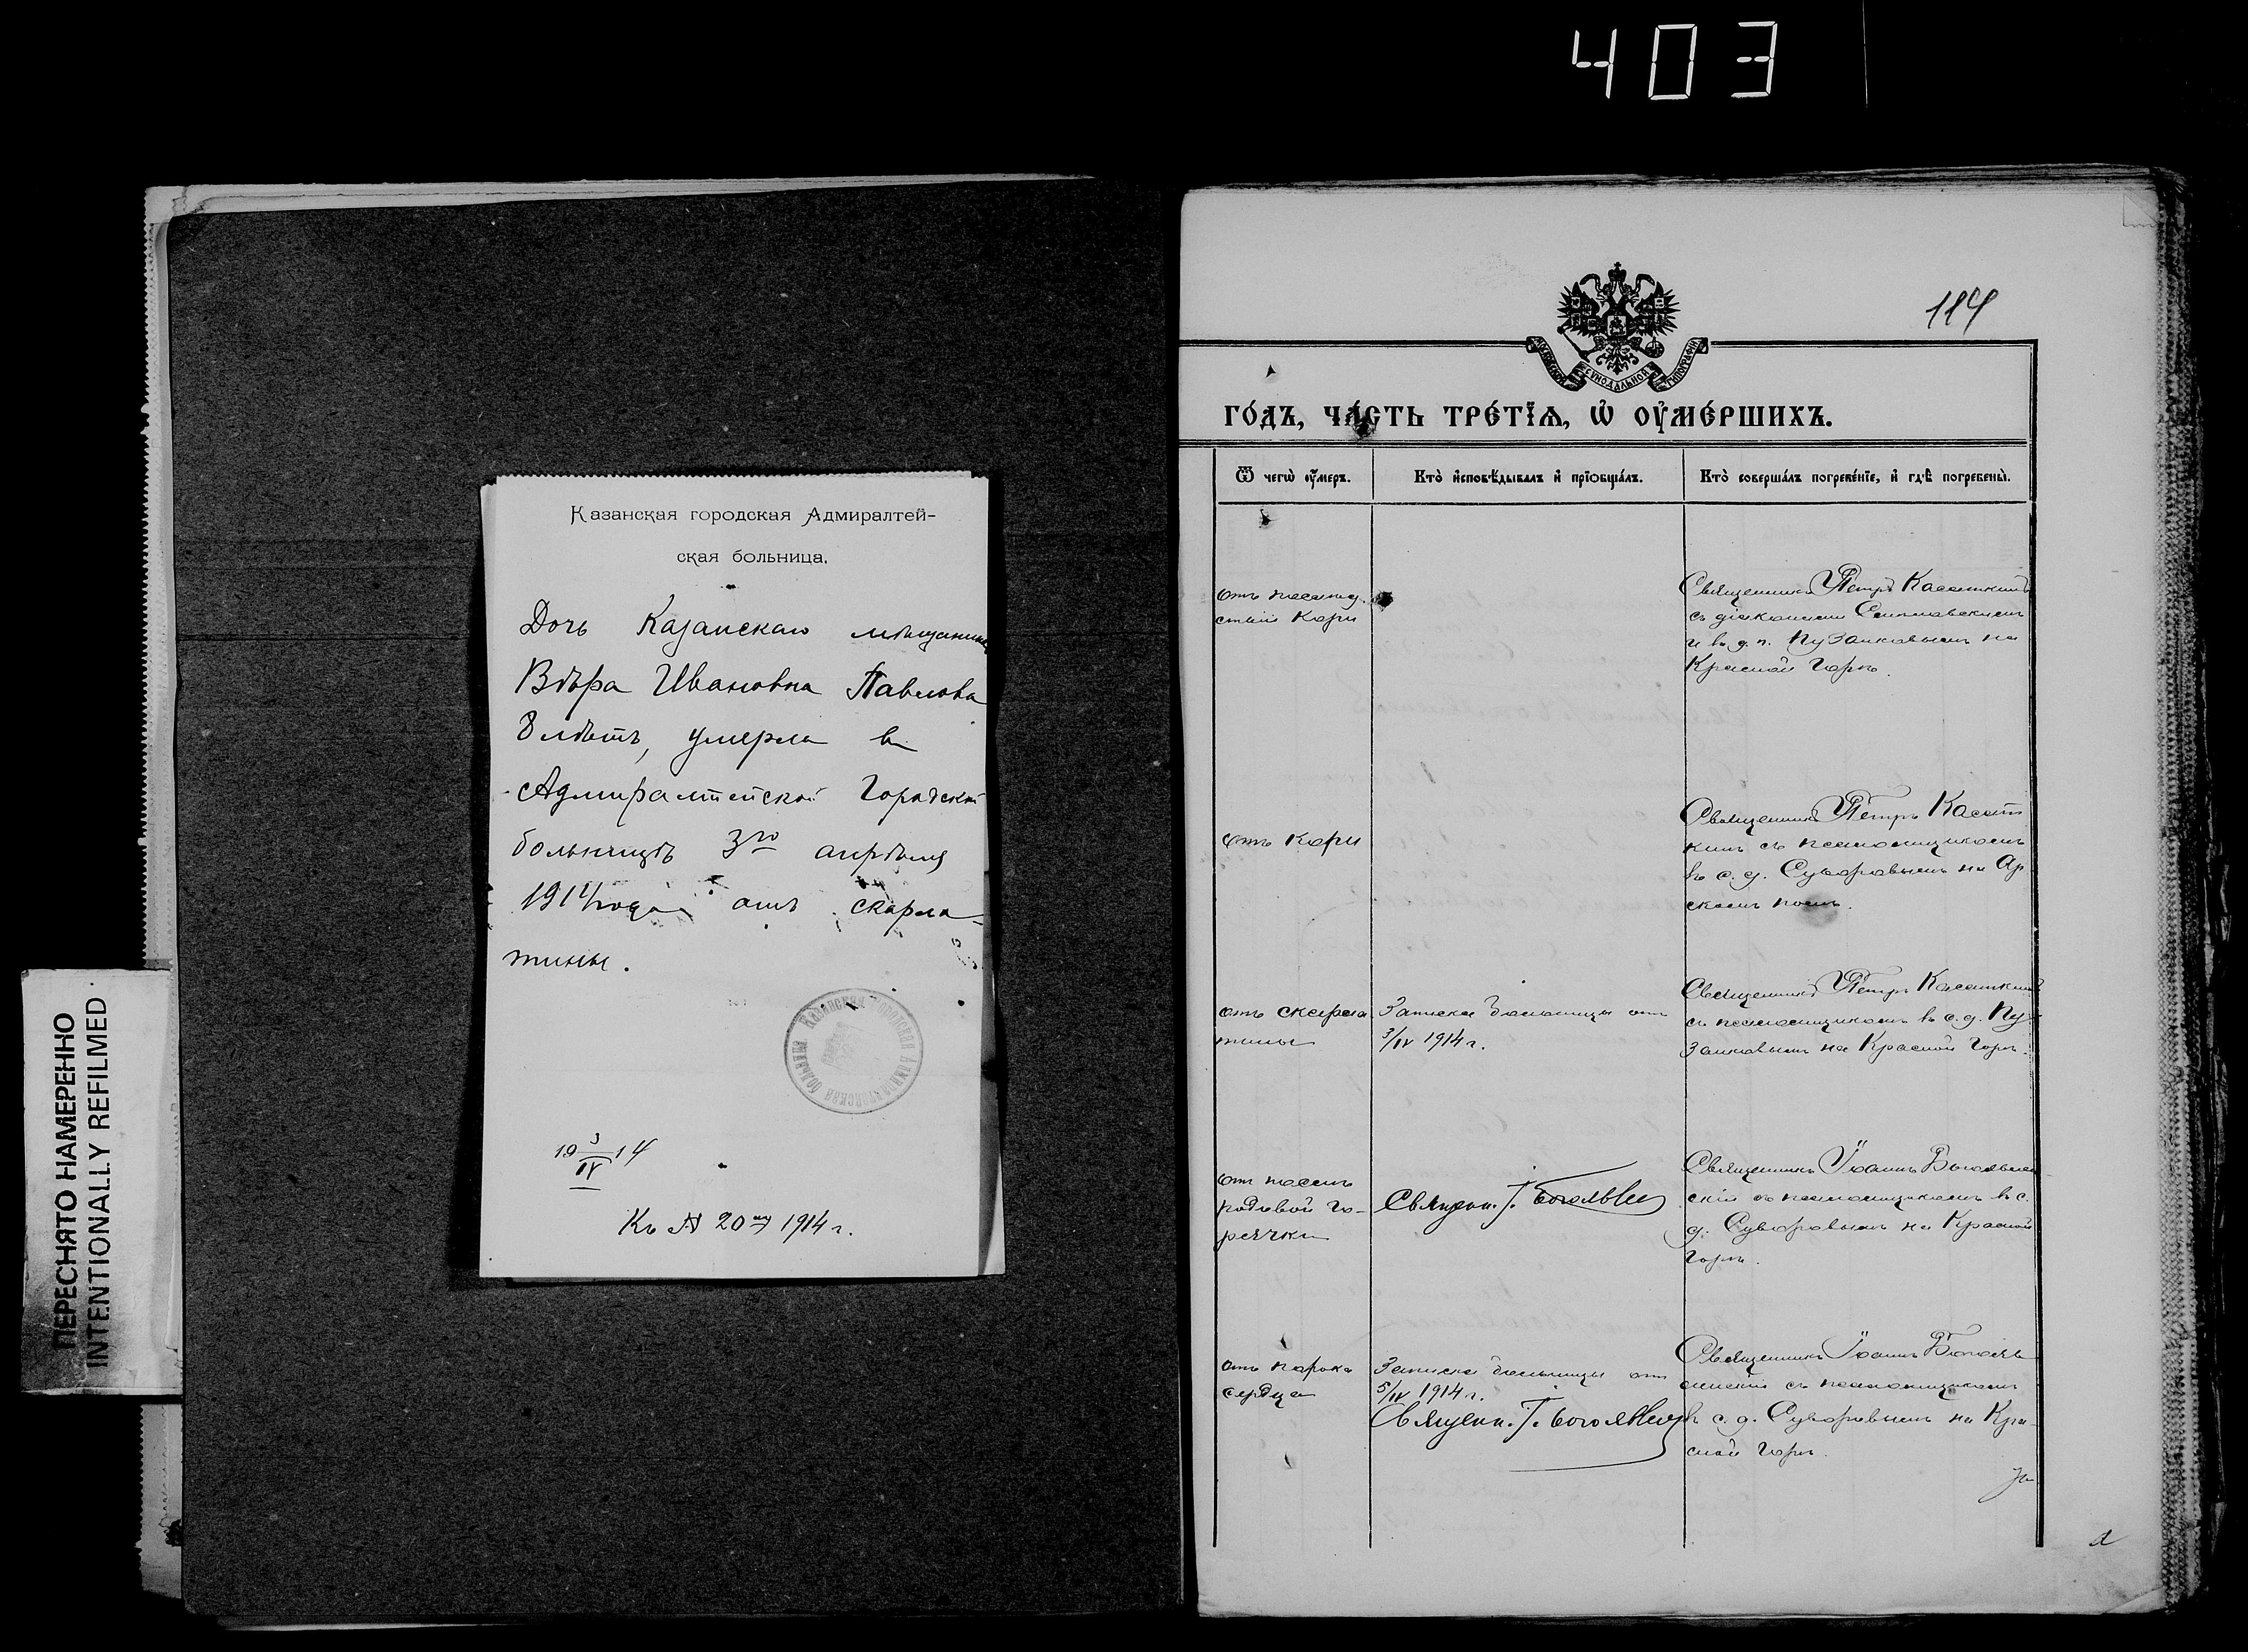 403
ПЕРЕСНЯТО НАМЕРЕННО
INTENTIONALLY REFILMED
Казанская городская Адмиралтей-
ская больница.
Дочь Казанскаго мѣщанина
Вѣра Ивановна Павлова
8 лѣтъ, умерла въ
Адмиралтейской Городской
больницѣ 3го апрѣля
1914 года отъ скарла-
тины.
КАЗАНСКАЯ ГОРОДСКАЯ АДМИРАЛТЕЙСКАЯ БОЛЬНИЦА
19 3/IV 14
Къ № 20му 1914 г.
114
СѴНОДАЛЬНОЙ ТИПОГРАФІИ
ГО́ДЪ, ЧА́СТЬ ТРЕ́ТЇѦ, Ѡ҆ ОУ҆МЕ́РШИХЪ.
Ѿ чегѡ̀ ѹ҆́меръ.
Кто̀ и҆сповѣ́дывалъ и҆ прїѡбща́лъ.
Кто̀ соверша́лъ погребе́нїе, и҆ гдѣ̀ погребены̀.
отъ послѣд
ствій кори
Священникъ Петръ Касаткинъ
съ діакономъ
и в. д. п. Пузанковымъ на
Красной Горкѣ.
отъ кори
Священникъ Петръ Касат
кинъ съ псаломщикомъ
в. с. д. Суворовымъ на Ар
скомъ полѣ.
отъ скарла
тины
Записка больницы отъ
3/IV 1914 г.
Священникъ Петръ Касаткинъ
съ псаломщикомъ в. с. д. Пу
занковымъ на Красной Горкѣ.
отъ послѣ
родовой го-
рячки
Священ. І. Боголюбск
Священникъ Іоаннъ Боголюб
скій съ псаломщикомъ в. с.
д. Суворовымъ на Красной
Горкѣ.
отъ порока
сердца
Записка больницы отъ
5/IV 1914 г.
Священ. І. Боголюбск
Священникъ Іоаннъ Боголю
бскій съ псаломщикомъ
в. с. д. Суворовымъ на Кра-
сной Горкѣ.